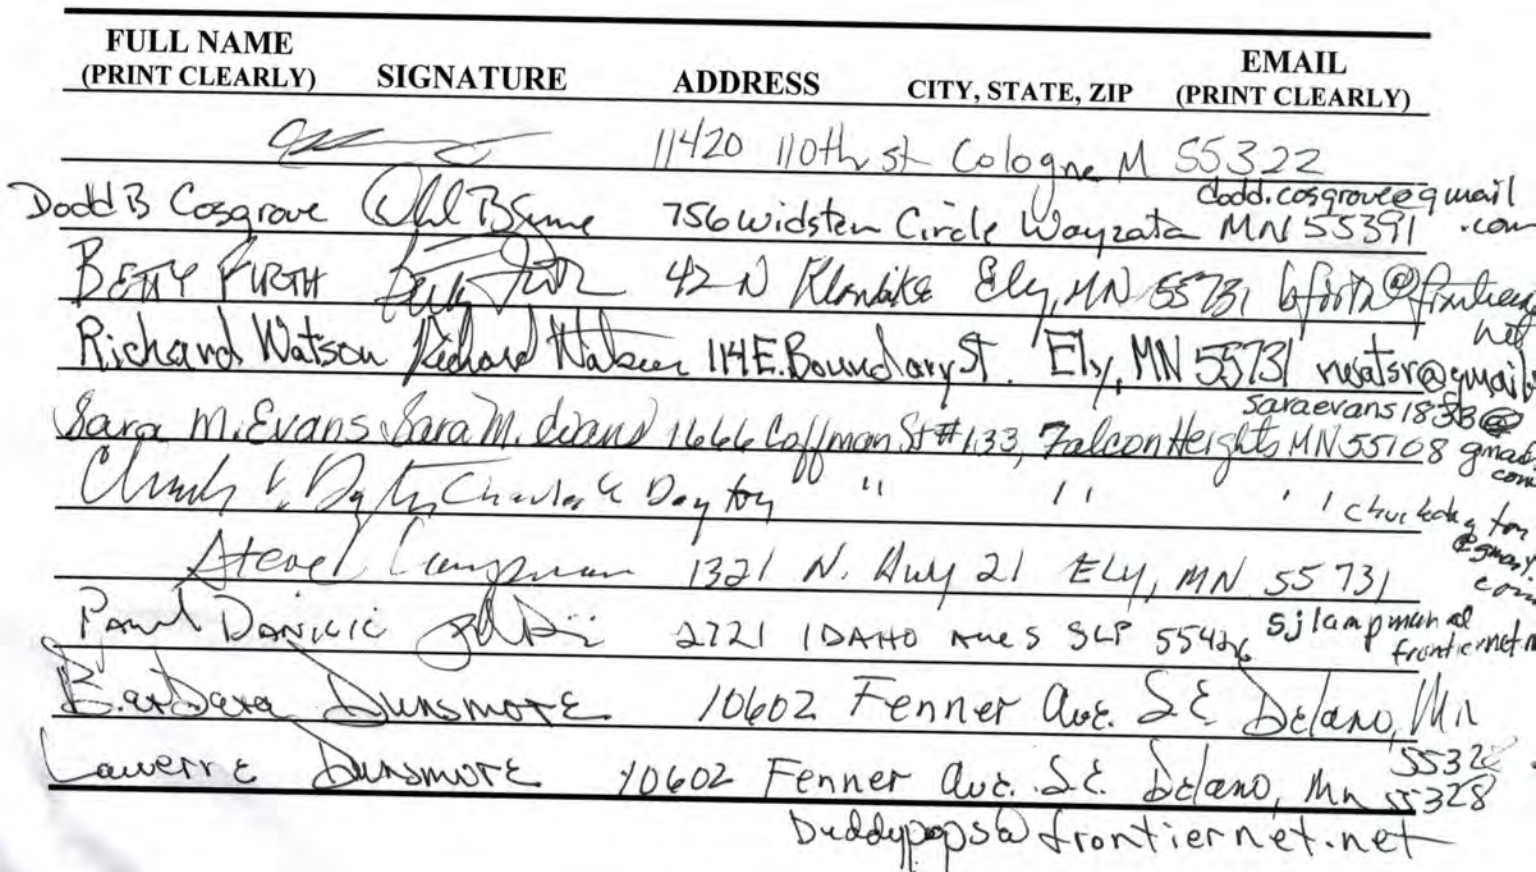 FULL NAME
(PRINT CLEARLY) SIGNATURE ADDRESS CITY, STATE, ZIP EMAIL
(PRINT CLEARLY)
11420 110th st Cologne M 55322
Dodd B Cosgrove 756 Widsten Circle Wayzata MN 55391 dodd.cosgrove@gmail
.com
BETTY FIRTH 42 N Klondike Ely, MN 55731 bfirth@
net
Richard Watson Richard Watson 114 E. Boundary St. Ely, MN 55731 rwatsr@gmail
Sara M. Evans Sara M. Evans 1666 Coffman St #133, Falcon Heights MN 55108 saraevans1883@
gmail
com
Charles K Dayton " " "
@gmail.
com
Steve Lampman 1321 N. Hwy 21 ELy, MN 55731
sjlampman
frontiernet.n
Paul DANICIC 2721 IDAHO AVE S SLP 55426
Barbara Dunsmore 10602 Fenner Ave. S.E. Delano, Mn
55328
Lawerne Dunsmore 10602 Fenner Ave. S.E. Delano, Mn 55328
buddypops@frontiernet.net